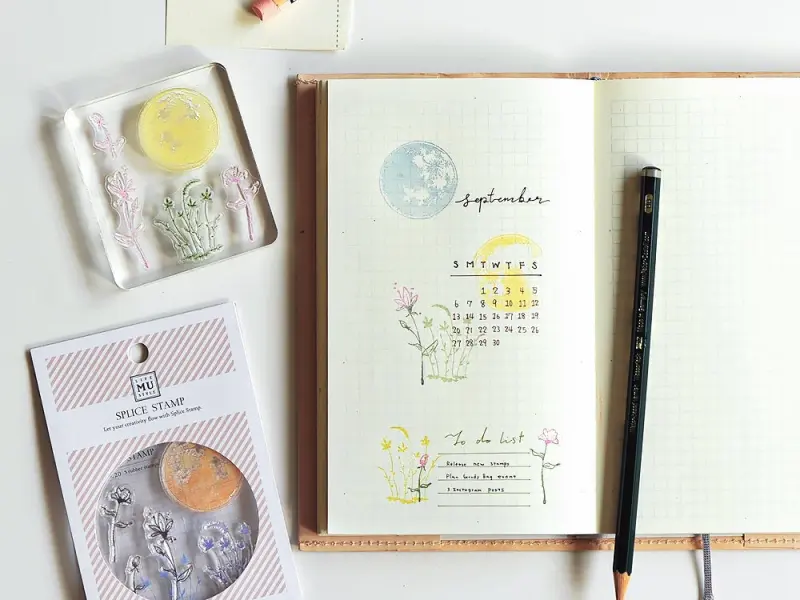 september
S M T W T F S
1 2 3 4 5
6 7 8 9 10 11 12
13 14 15 16 17 18 19
20 21 22 23 24 25 26
27 28 29 30
To do list
Release new stamps
Plan Goody Bag event
3 Instagram posts
MU
SPLICE STAMP
Let your creativity flow with Splice Stamp.
STAMP